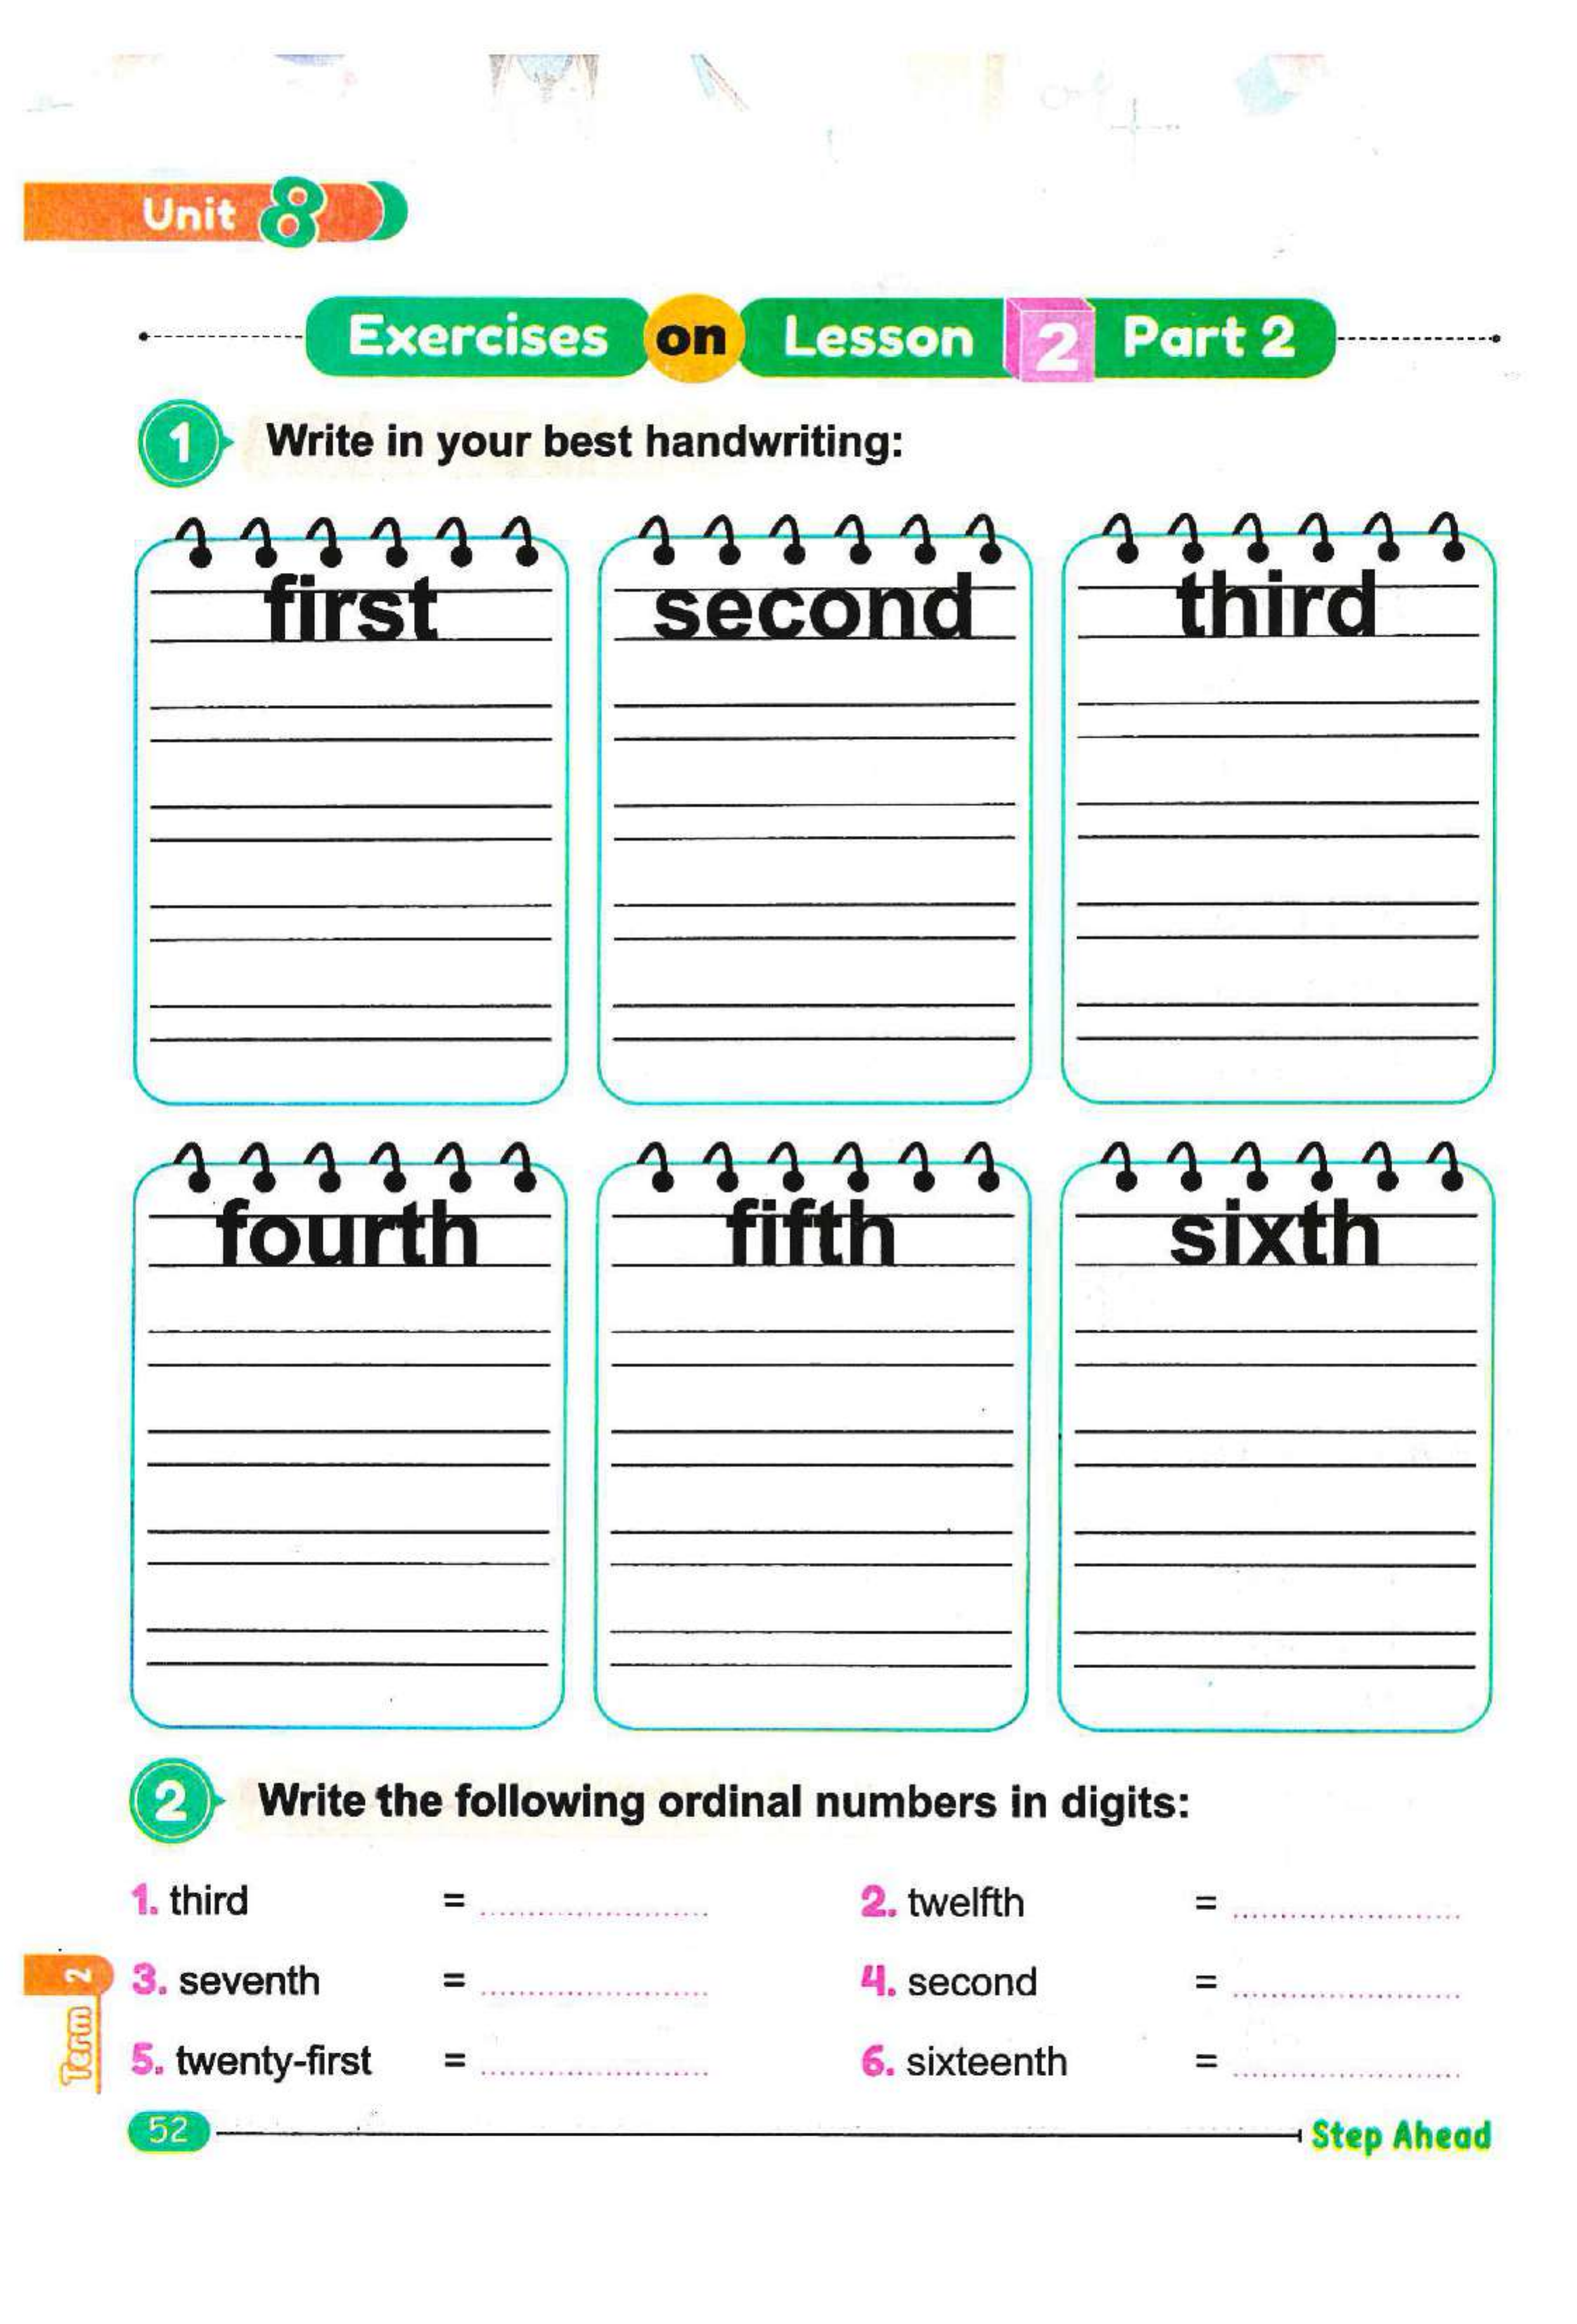 Unit 8
Exercises on Lesson 2 Part 2
1 Write in your best handwriting:
first second third
fourth fifth sixth
2 Write the following ordinal numbers in digits:
1. third = ........................ 2. twelfth = ........................
3. seventh = ........................ 4. second = ........................
5. twenty-first = ........................ 6. sixteenth = ........................
Term 2
52 Step Ahead